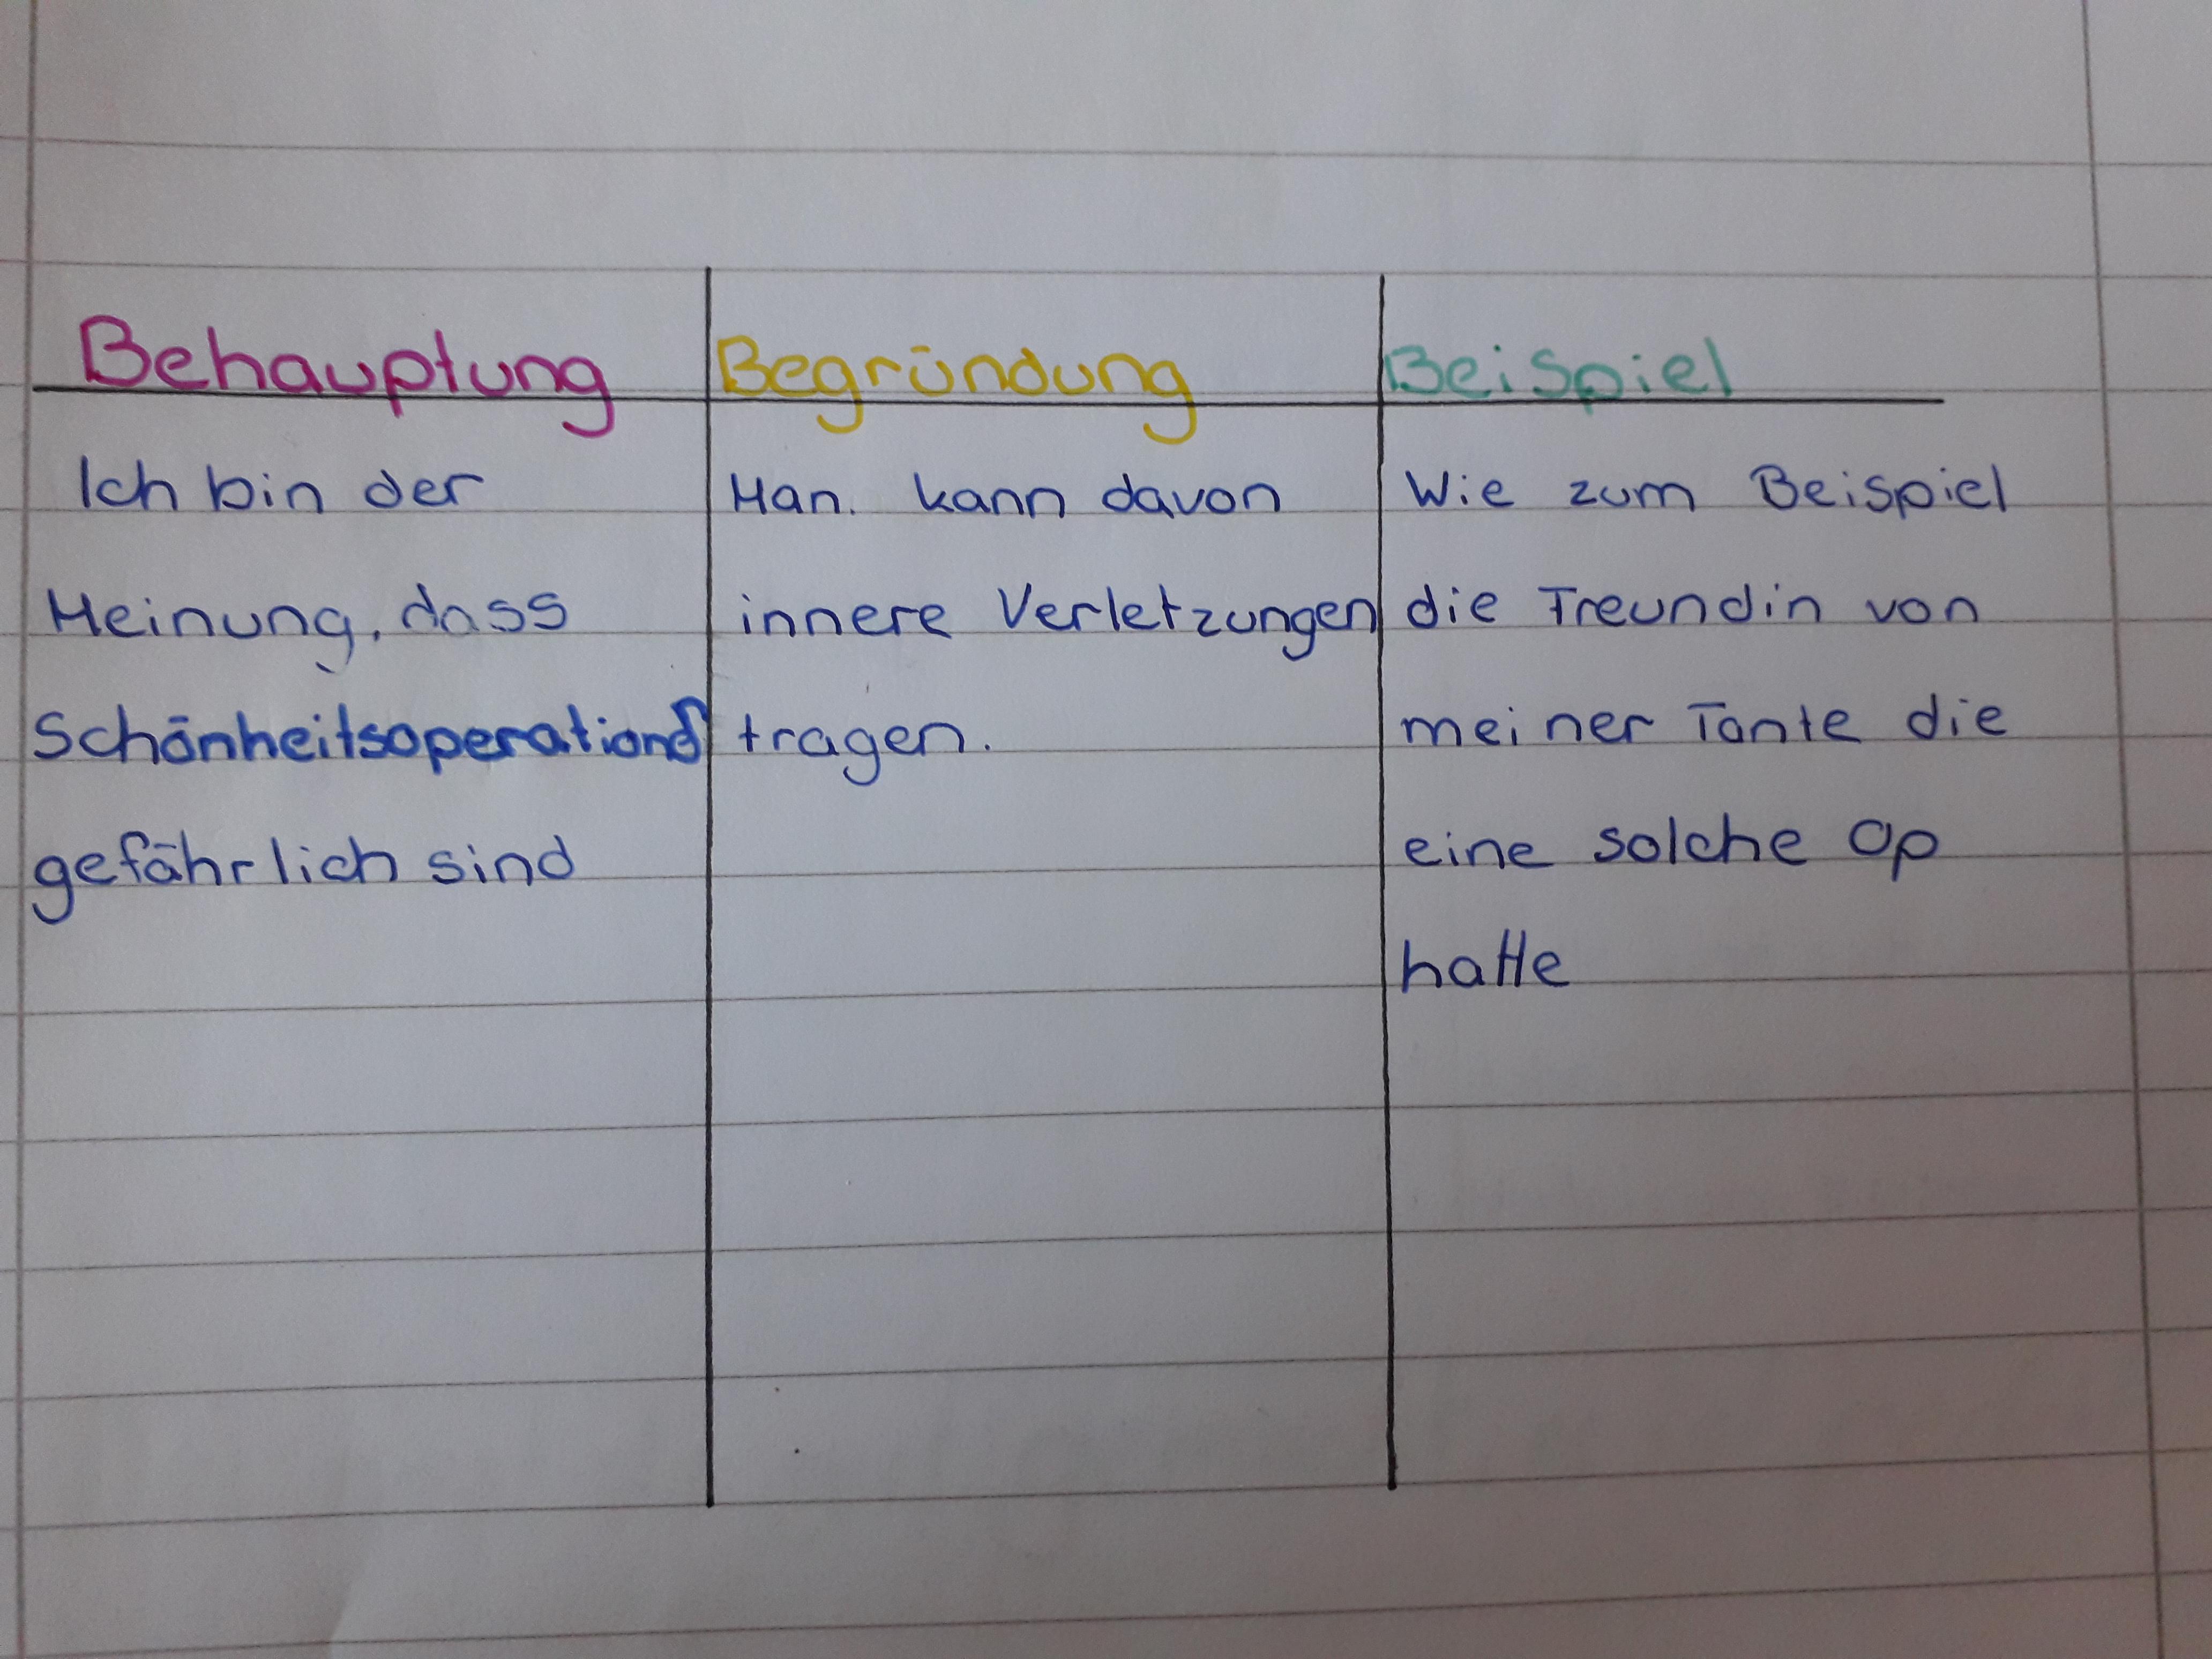 Behauptung
Ich bin der
Meinung, dass
Schönheitsoperations
gefährlich sind
Begründung
Man. kann davon
innere Verletzungen
tragen.
Beispiel
Wie zum Beispiel
die Freundin von
meiner Tante die
eine solche Op
hatte